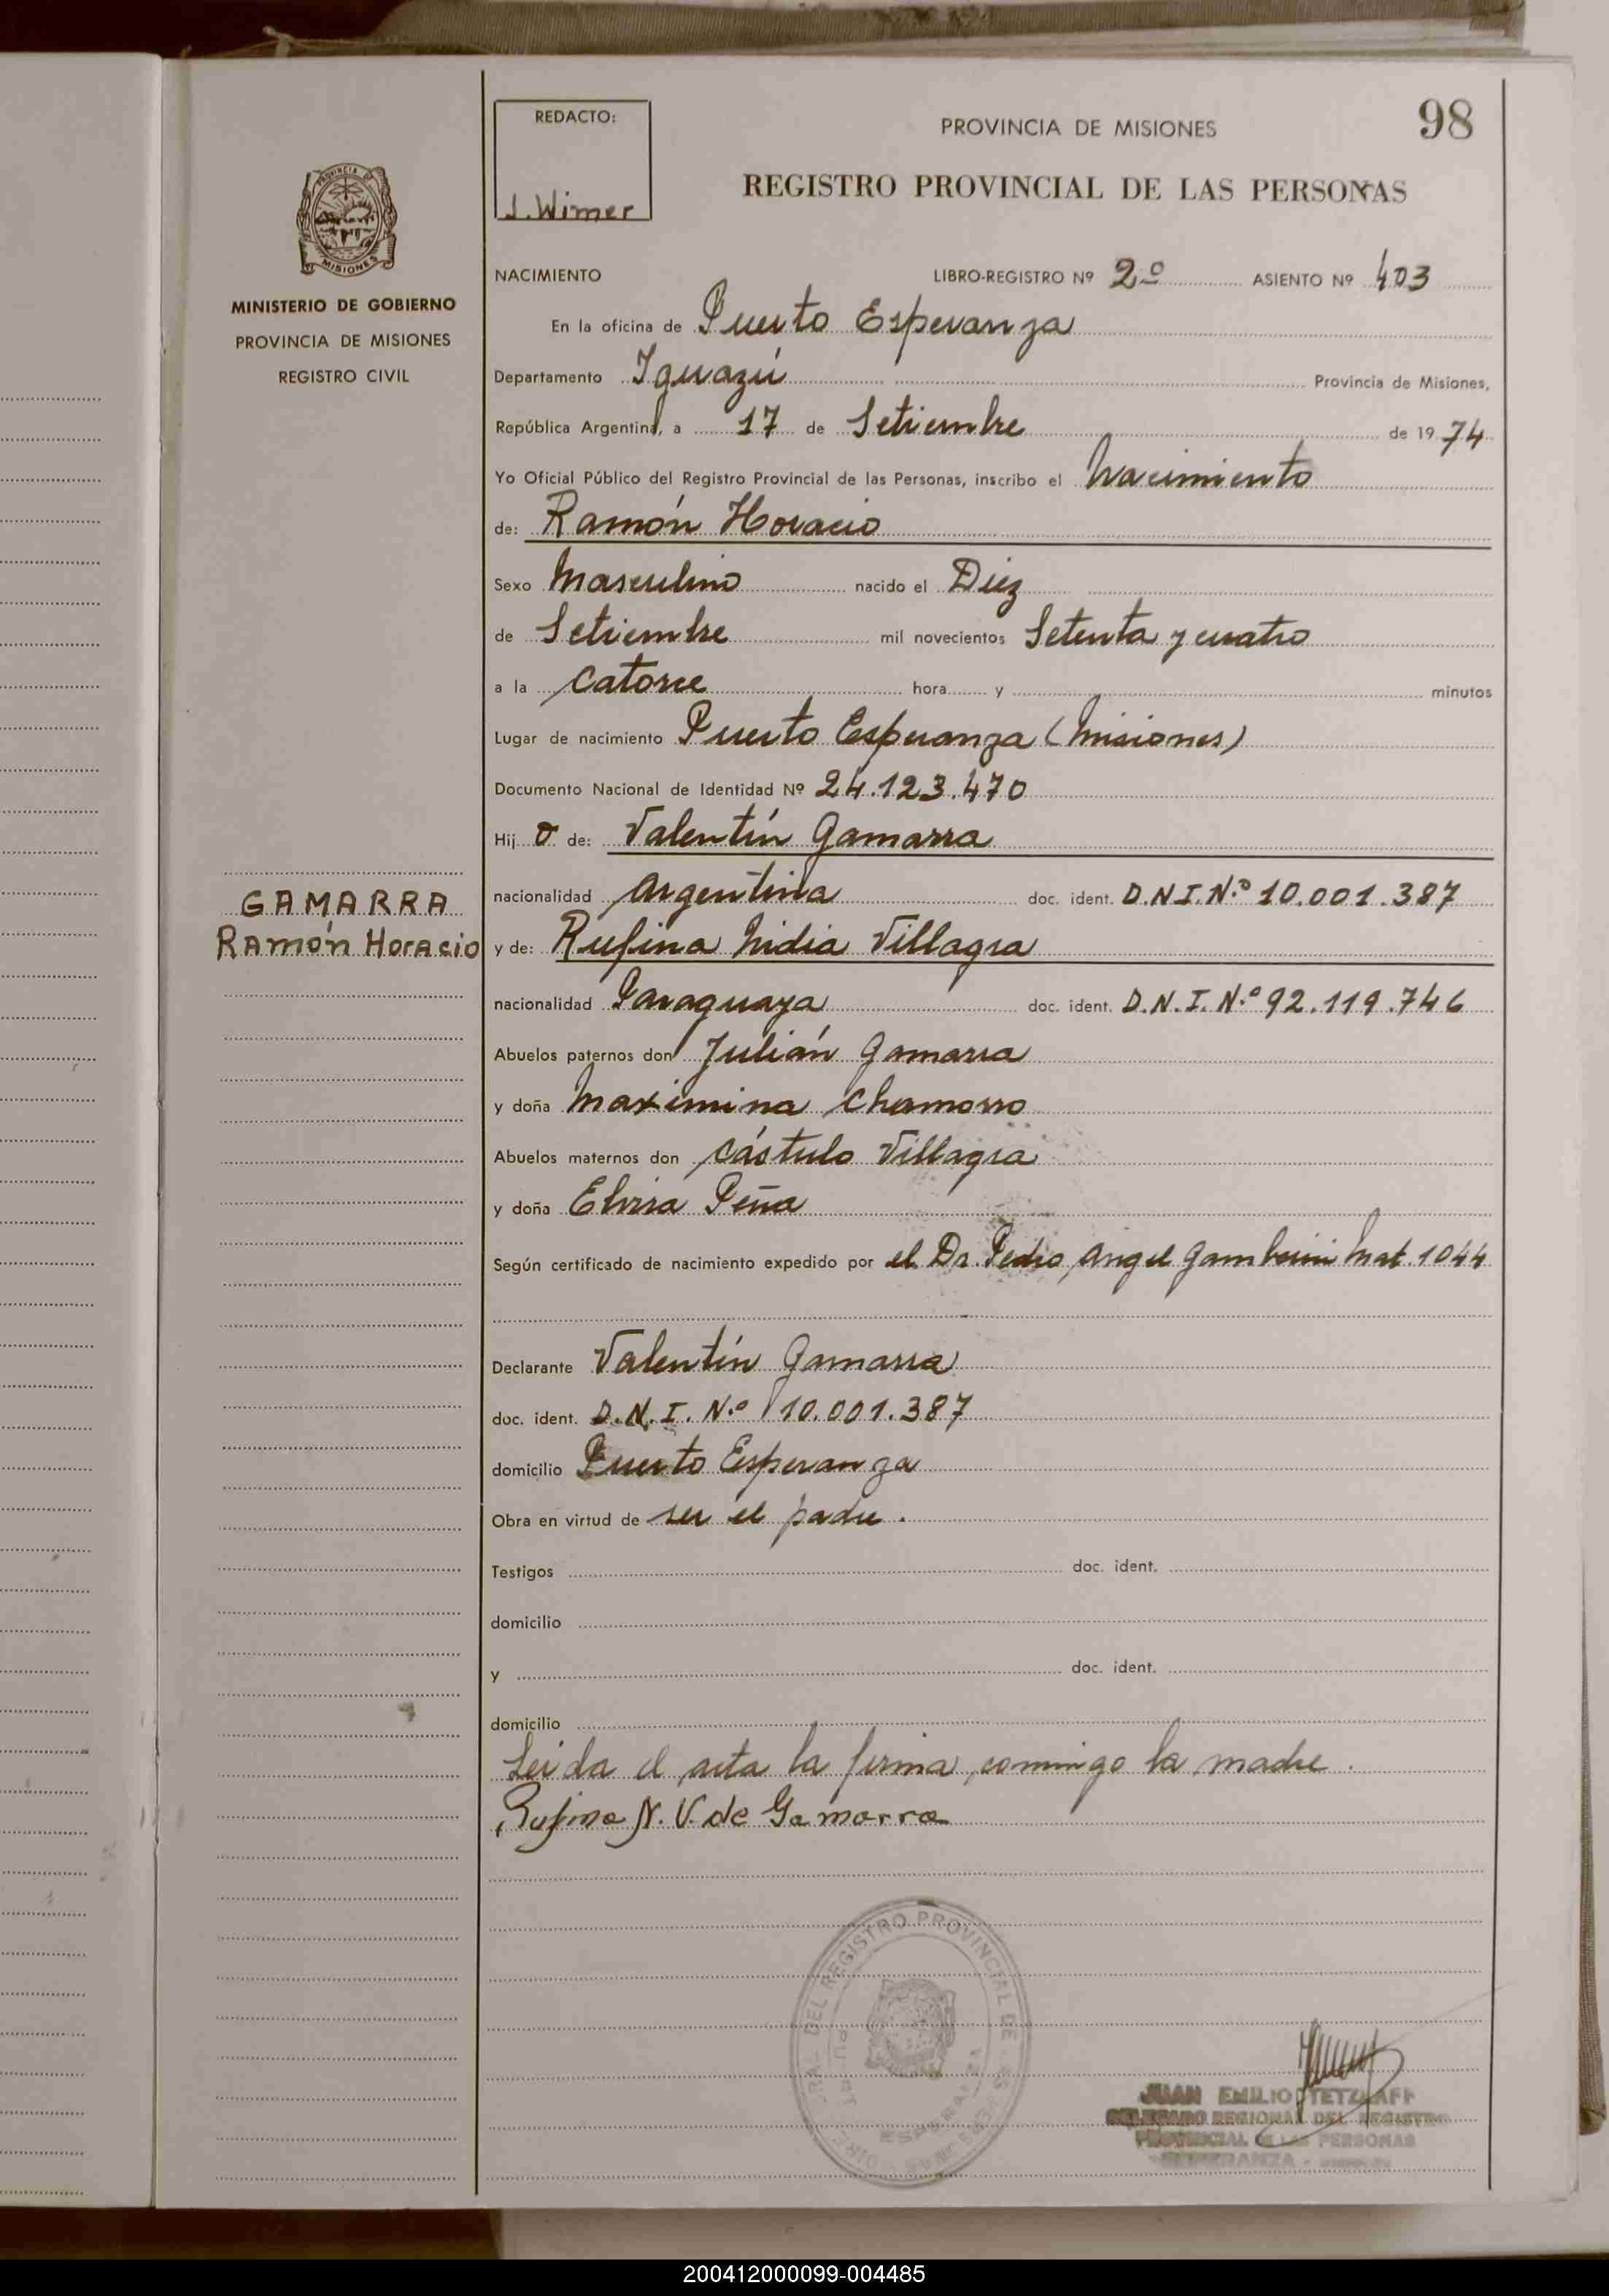 REDACTO:
J. Wimer
PROVINCIA DE MISIONES
98
REGISTRO PROVINCIAL DE LAS PERSONAS
PROVINCIA DE
MISIONES
MINISTERIO DE GOBIERNO
PROVINCIA DE MISIONES
REGISTRO CIVIL
NACIMIENTO LIBRO-REGISTRO Nº 2º ASIENTO Nº 403
En la oficina de Puerto Esperanza
Departamento Iguazú Provincia de Misiones,
República Argentina, a 17 de Setiembre de 1974
Yo Oficial Público del Registro Provincial de las Personas, inscribo el Nacimiento
de: Ramón Horacio
Sexo Masculino nacido el Diez
de Setiembre mil novecientos Setenta y cuatro
a la Catorce hora y minutos
Lugar de nacimiento Puerto Esperanza (Misiones)
Documento Nacional de Identidad Nº 24.123.470
Hijo de: Valentín Gamarra
nacionalidad Argentina doc. ident. D.N.I.N.º 10.001.387
GAMARRA
Ramón Horacio
y de: Rufina Nidia Villagra
nacionalidad Paraguaya doc. ident. D.N.I.N.º 92.119.746
Abuelos paternos don Julián Gamarra
y doña Maximina Chamorro
Abuelos maternos don Cástulo Villagra
y doña Elvira Peña
Según certificado de nacimiento expedido por el Dr. Pedro Angel Gamberini Mat. 1044
Declarante Valentín Gamarra
doc. ident. D.N.I. N.º 10.001.387
domicilio Puerto Esperanza
Obra en virtud de ser el padre.
Testigos doc. ident.
domicilio
y doc. ident.
domicilio
Leida el acta la firma comingo la madre.
Rufina N. V. de Gamarra
DEL REGISTRO PROVINCIAL DE
JUAN EMILIO TETZLAFF
DELEGADO REGIONAL DEL REGISTRO
PROVINCIAL DE LAS PERSONAS
ESPERANZA -
200412000099-004485